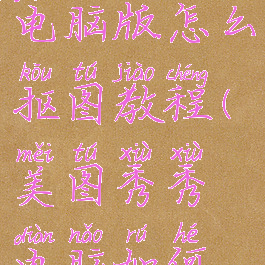 电脑版怎么
kōu tú jiào chéng
抠图教程(
měi tú xiù xiù
美图秀秀
diàn nǎo rú hé
电脑如何